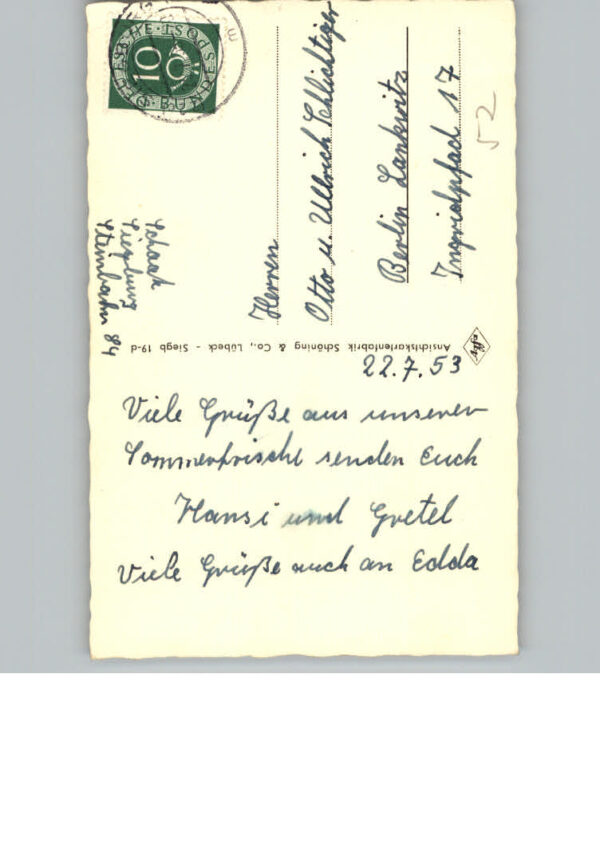 22.7.53
Viele Grüße aus unserer
Sommerfrische senden Euch
Hansi und Gretel
Viele Grüße auch an Edda
Herren
Otto u. Ullrich Schlichtiger
Berlin Lankwitz
Ingridpfad 17
52
Schaak
Siegburg
Steinbahn 84
Ansichtskartenfabrik Schöning & Co., Lübeck - Siegb 19-d
DEUTSCHE BUNDESPOST
10